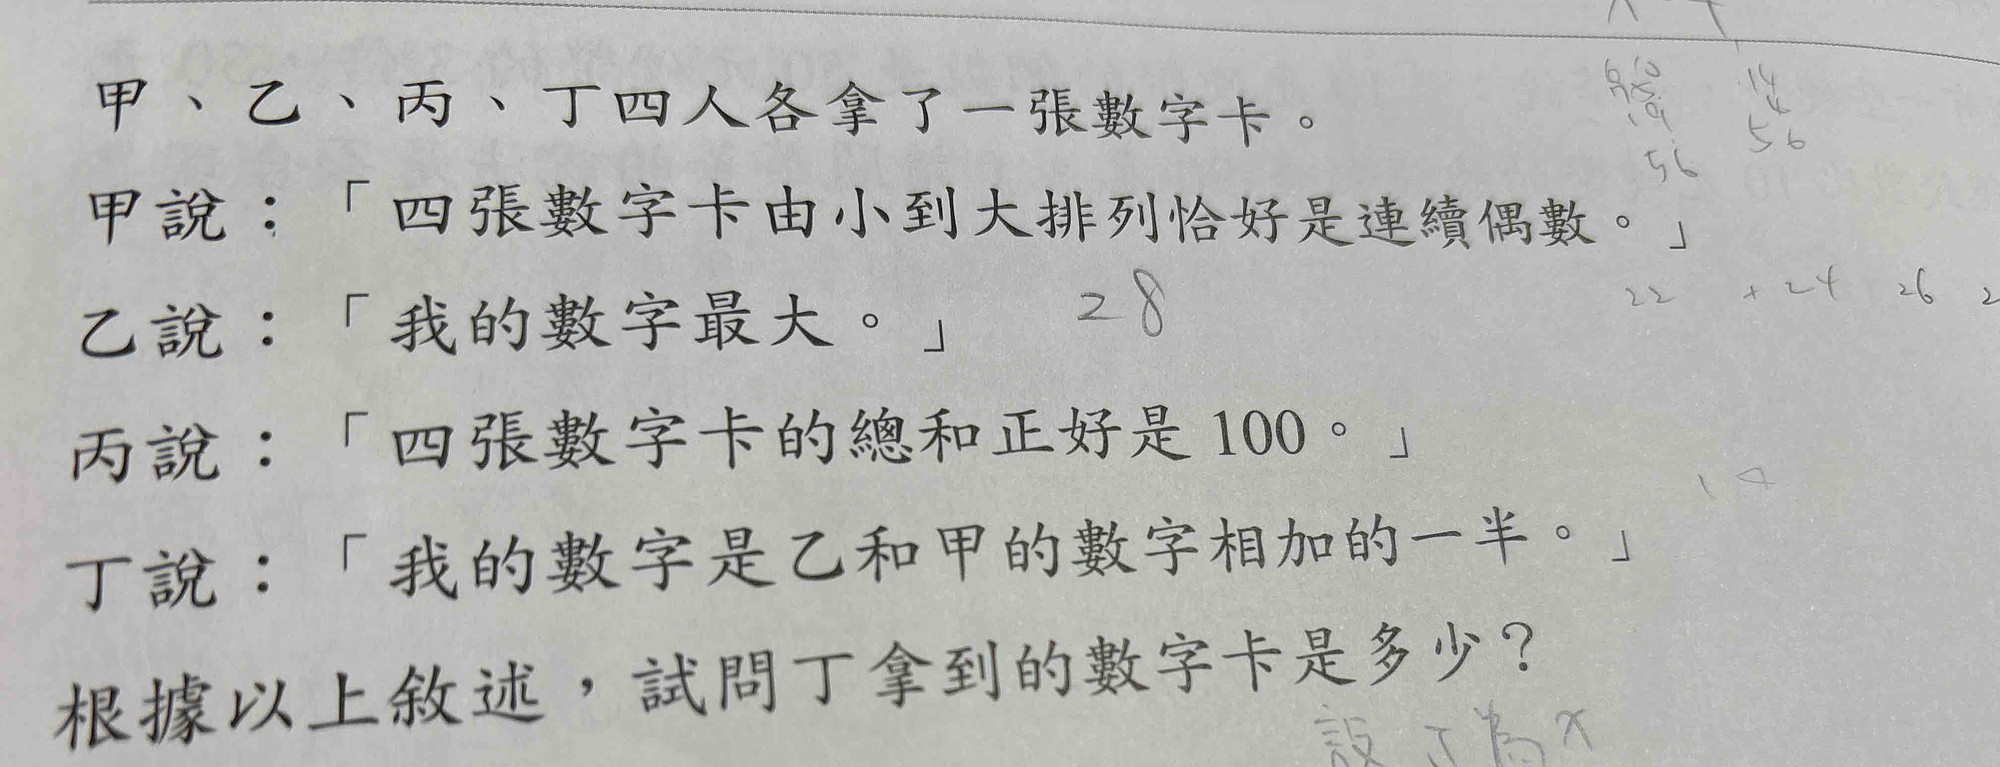 甲、乙、丙、丁四人各拿了一張數字卡。
甲說：「四張數字卡由小到大排列恰好是連續偶數。」
22 + 24 26 2
乙說：「我的數字最大。」 28
丙說：「四張數字卡的總和正好是 100。」
丁說：「我的數字是乙和甲的數字相加的一半。」
根據以上敘述，試問丁拿到的數字卡是多少？
設丁為x
14
4
56
56